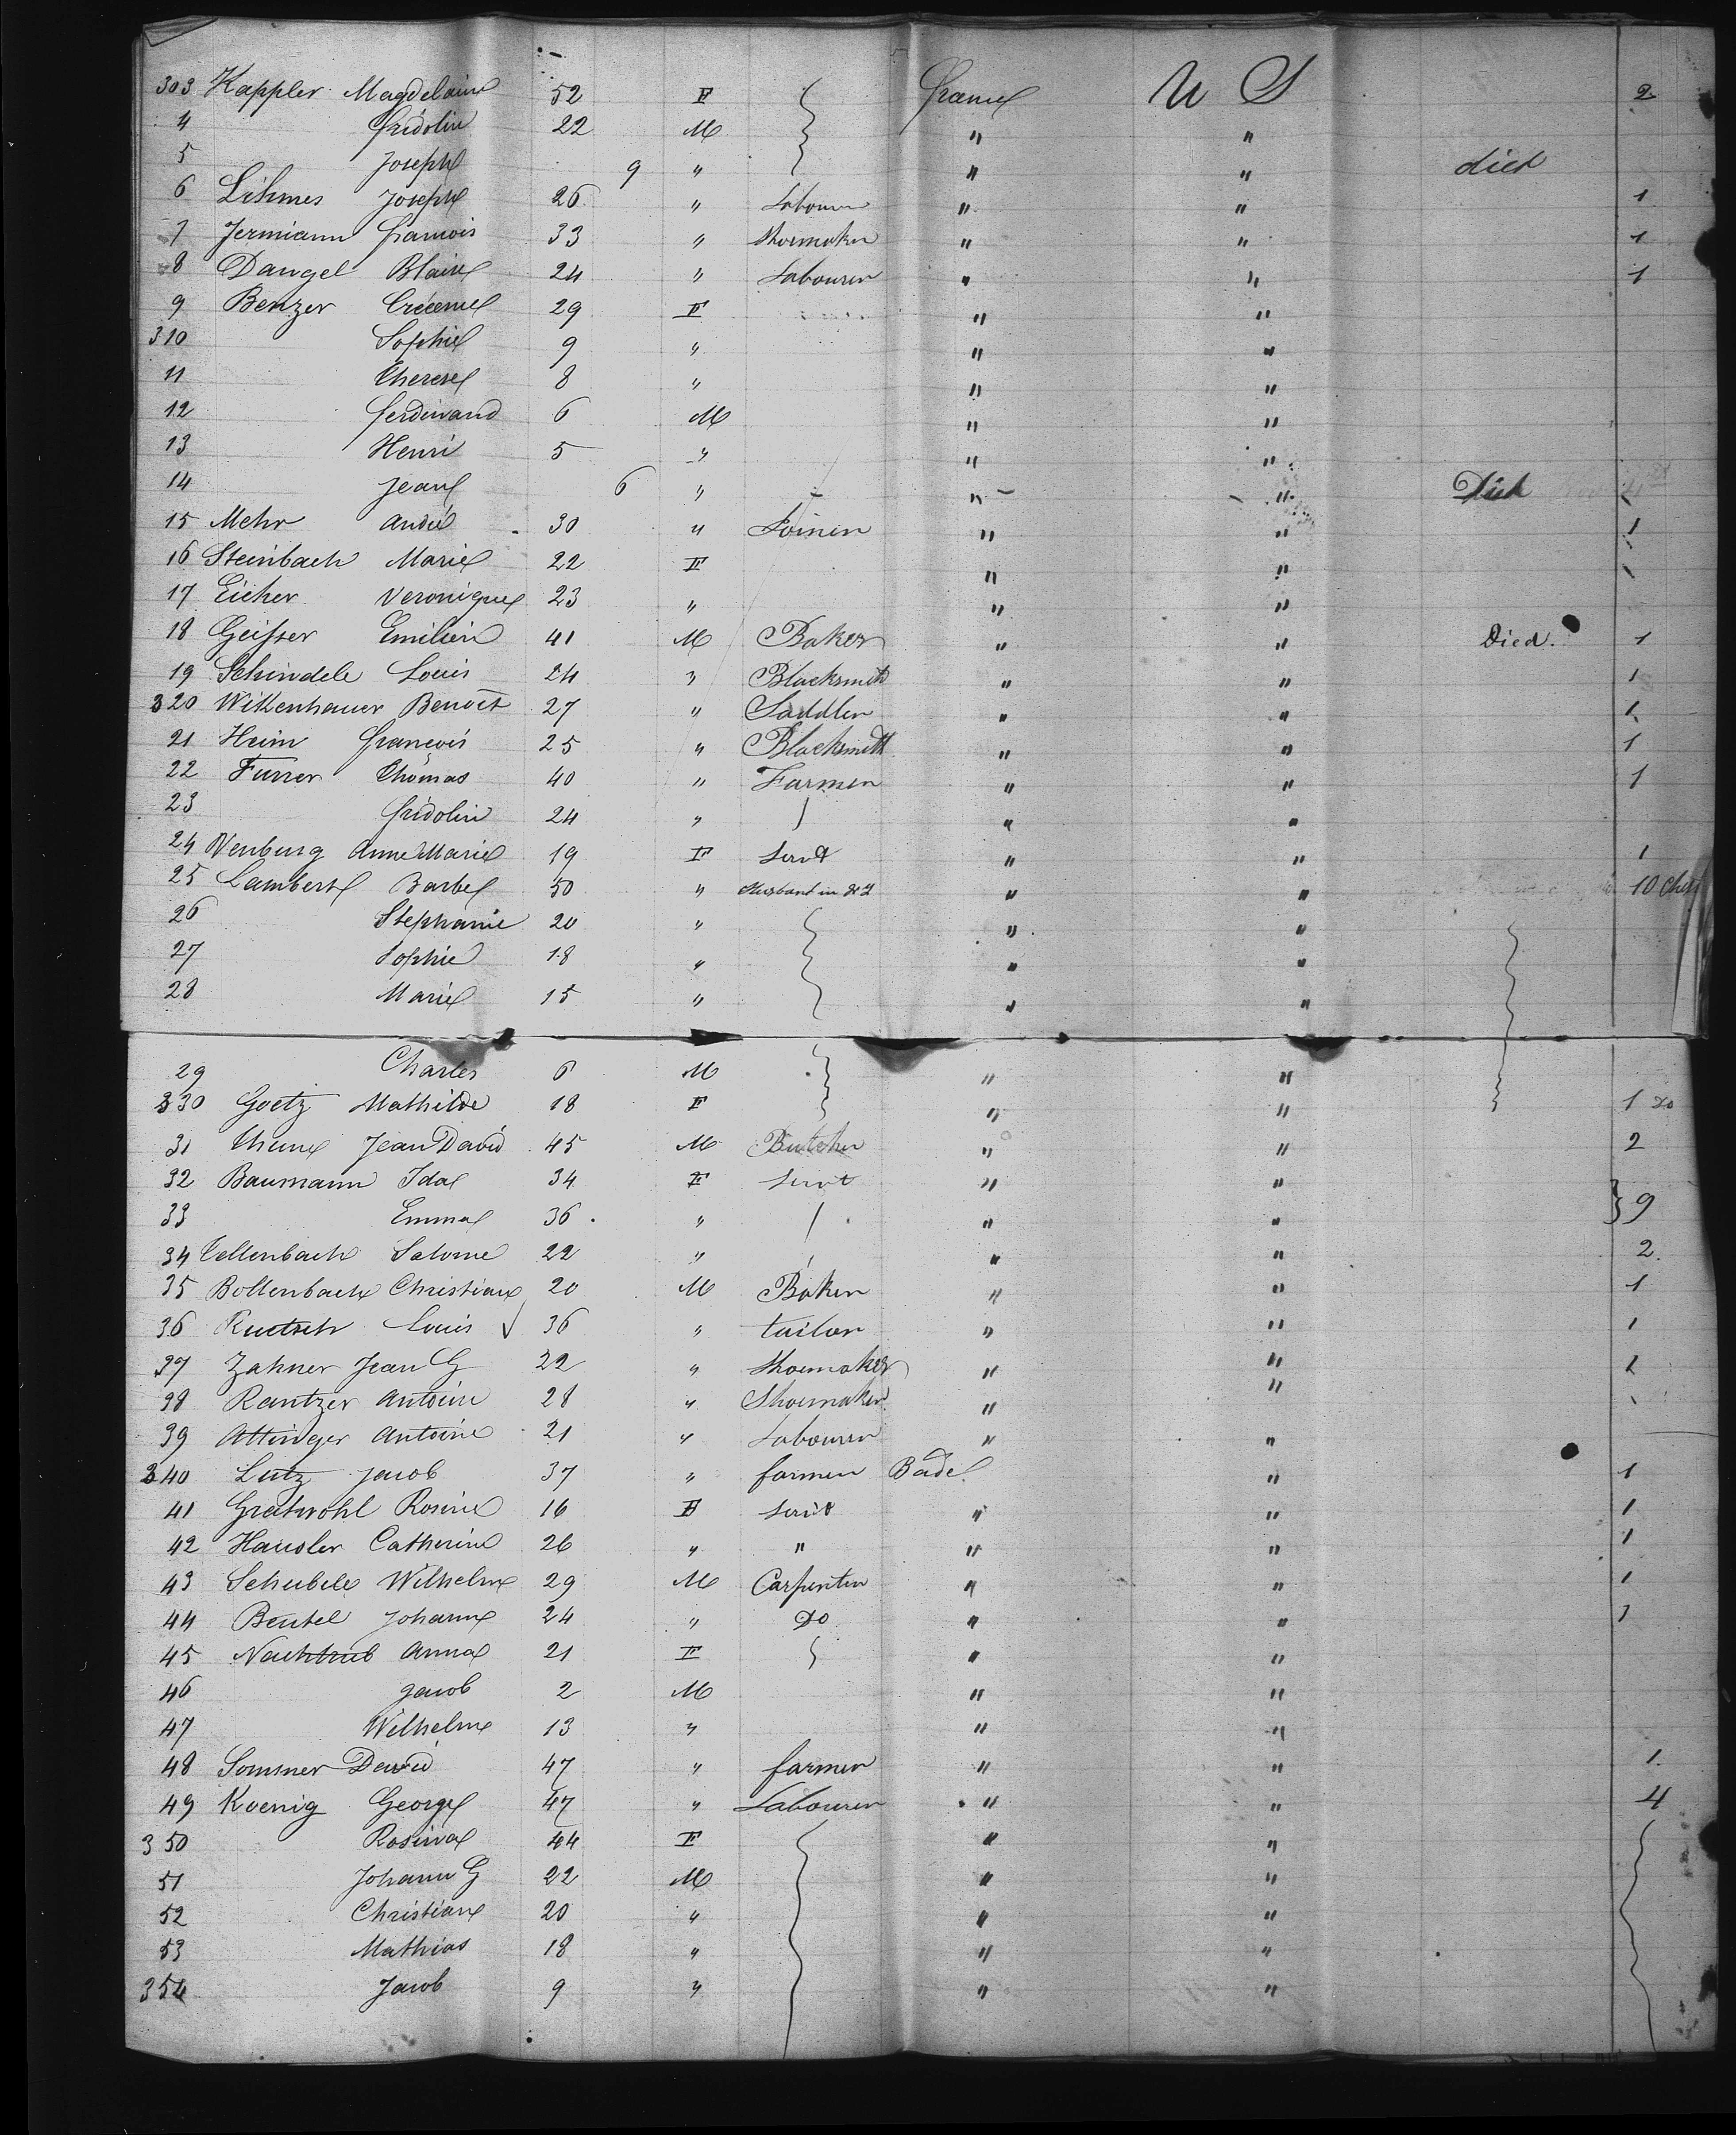 303 Kappler Magdelaine 52 F France U S 2
4 Fridolin 22 M " "
5 Joseph 9 " " " died
6 Lihmes Joseph 26 " Labourer " " 1
7 Jermiann Francois 33 " Shoemaker " " 1
8 Dangel Blaise 24 " Labourer " " 1
9 Benzer 29 F " "
310 Sophie 9 " " "
11 Therese 8 " " "
12 Ferdinand 6 M " "
13 Henri 5 " " "
14 Jean 6 " " " Died
15 Mehr André 30 " Joiner " " 1
16 Steinbach Marie 22 F " "
17 Eicher Veronique 23 " " "
18 Geisser Emilien 41 M Baker " " Died. 1
19 Schindele Louis 24 " Blacksmith " " 1
320 Wittenhauer Benoit 27 " Saddler " " 1
21 Heim Francois 25 " Blacksmith " " 1
22 Furrer Thomas 40 " Farmer " " 1
23 Fridolin 24 " " "
24 Neuburg Anne Marie 19 F Servt " " 1
25 Lambert Barbe 50 " Husband in " " 10
26 Stephanie 20 " " "
27 Sophie 18 " " "
28 Marie 15 " " "
29 Charles 6 M " "
330 Goetz Mathilde 18 F " " 1 Do
31 Thume Jean David 45 M Butcher " " 2
32 Baumann Ida 34 F Servt " " 9
33 Emma 36 " " "
34 Tellenbach Salome 22 " " " 2
35 Bollenbach Christian 20 M Baker " " 1
36 Rutsch Louis 36 " tailor " " 1
37 Zahner Jean G 22 " Shoemaker " " 1
38 Rantzer Antoine 28 " Shoemaker " "
39 Attinger Antoine 21 " Labourer " "
340 Lutz Jacob 37 " farmer Bade " 1
41 Gratwohl Rosine 16 F Servt " " 1
42 Hausler Catherine 26 " " " " 1
43 Schubele Wilhelm 29 M Carpenter " " 1
44 Beutel Johann 24 " Do " " 1
45 Nachtrieb Anna 21 F " "
46 Jacob 2 M " "
47 Wilhelm 13 " " "
48 Sommer David 47 " farmer " " 1
49 Koenig George 47 " Labourer " " 4
350 Rosina 44 F " "
51 Johann G 22 M " "
52 Christian 20 " " "
53 Mathias 18 " " "
354 Jacob 9 " " "